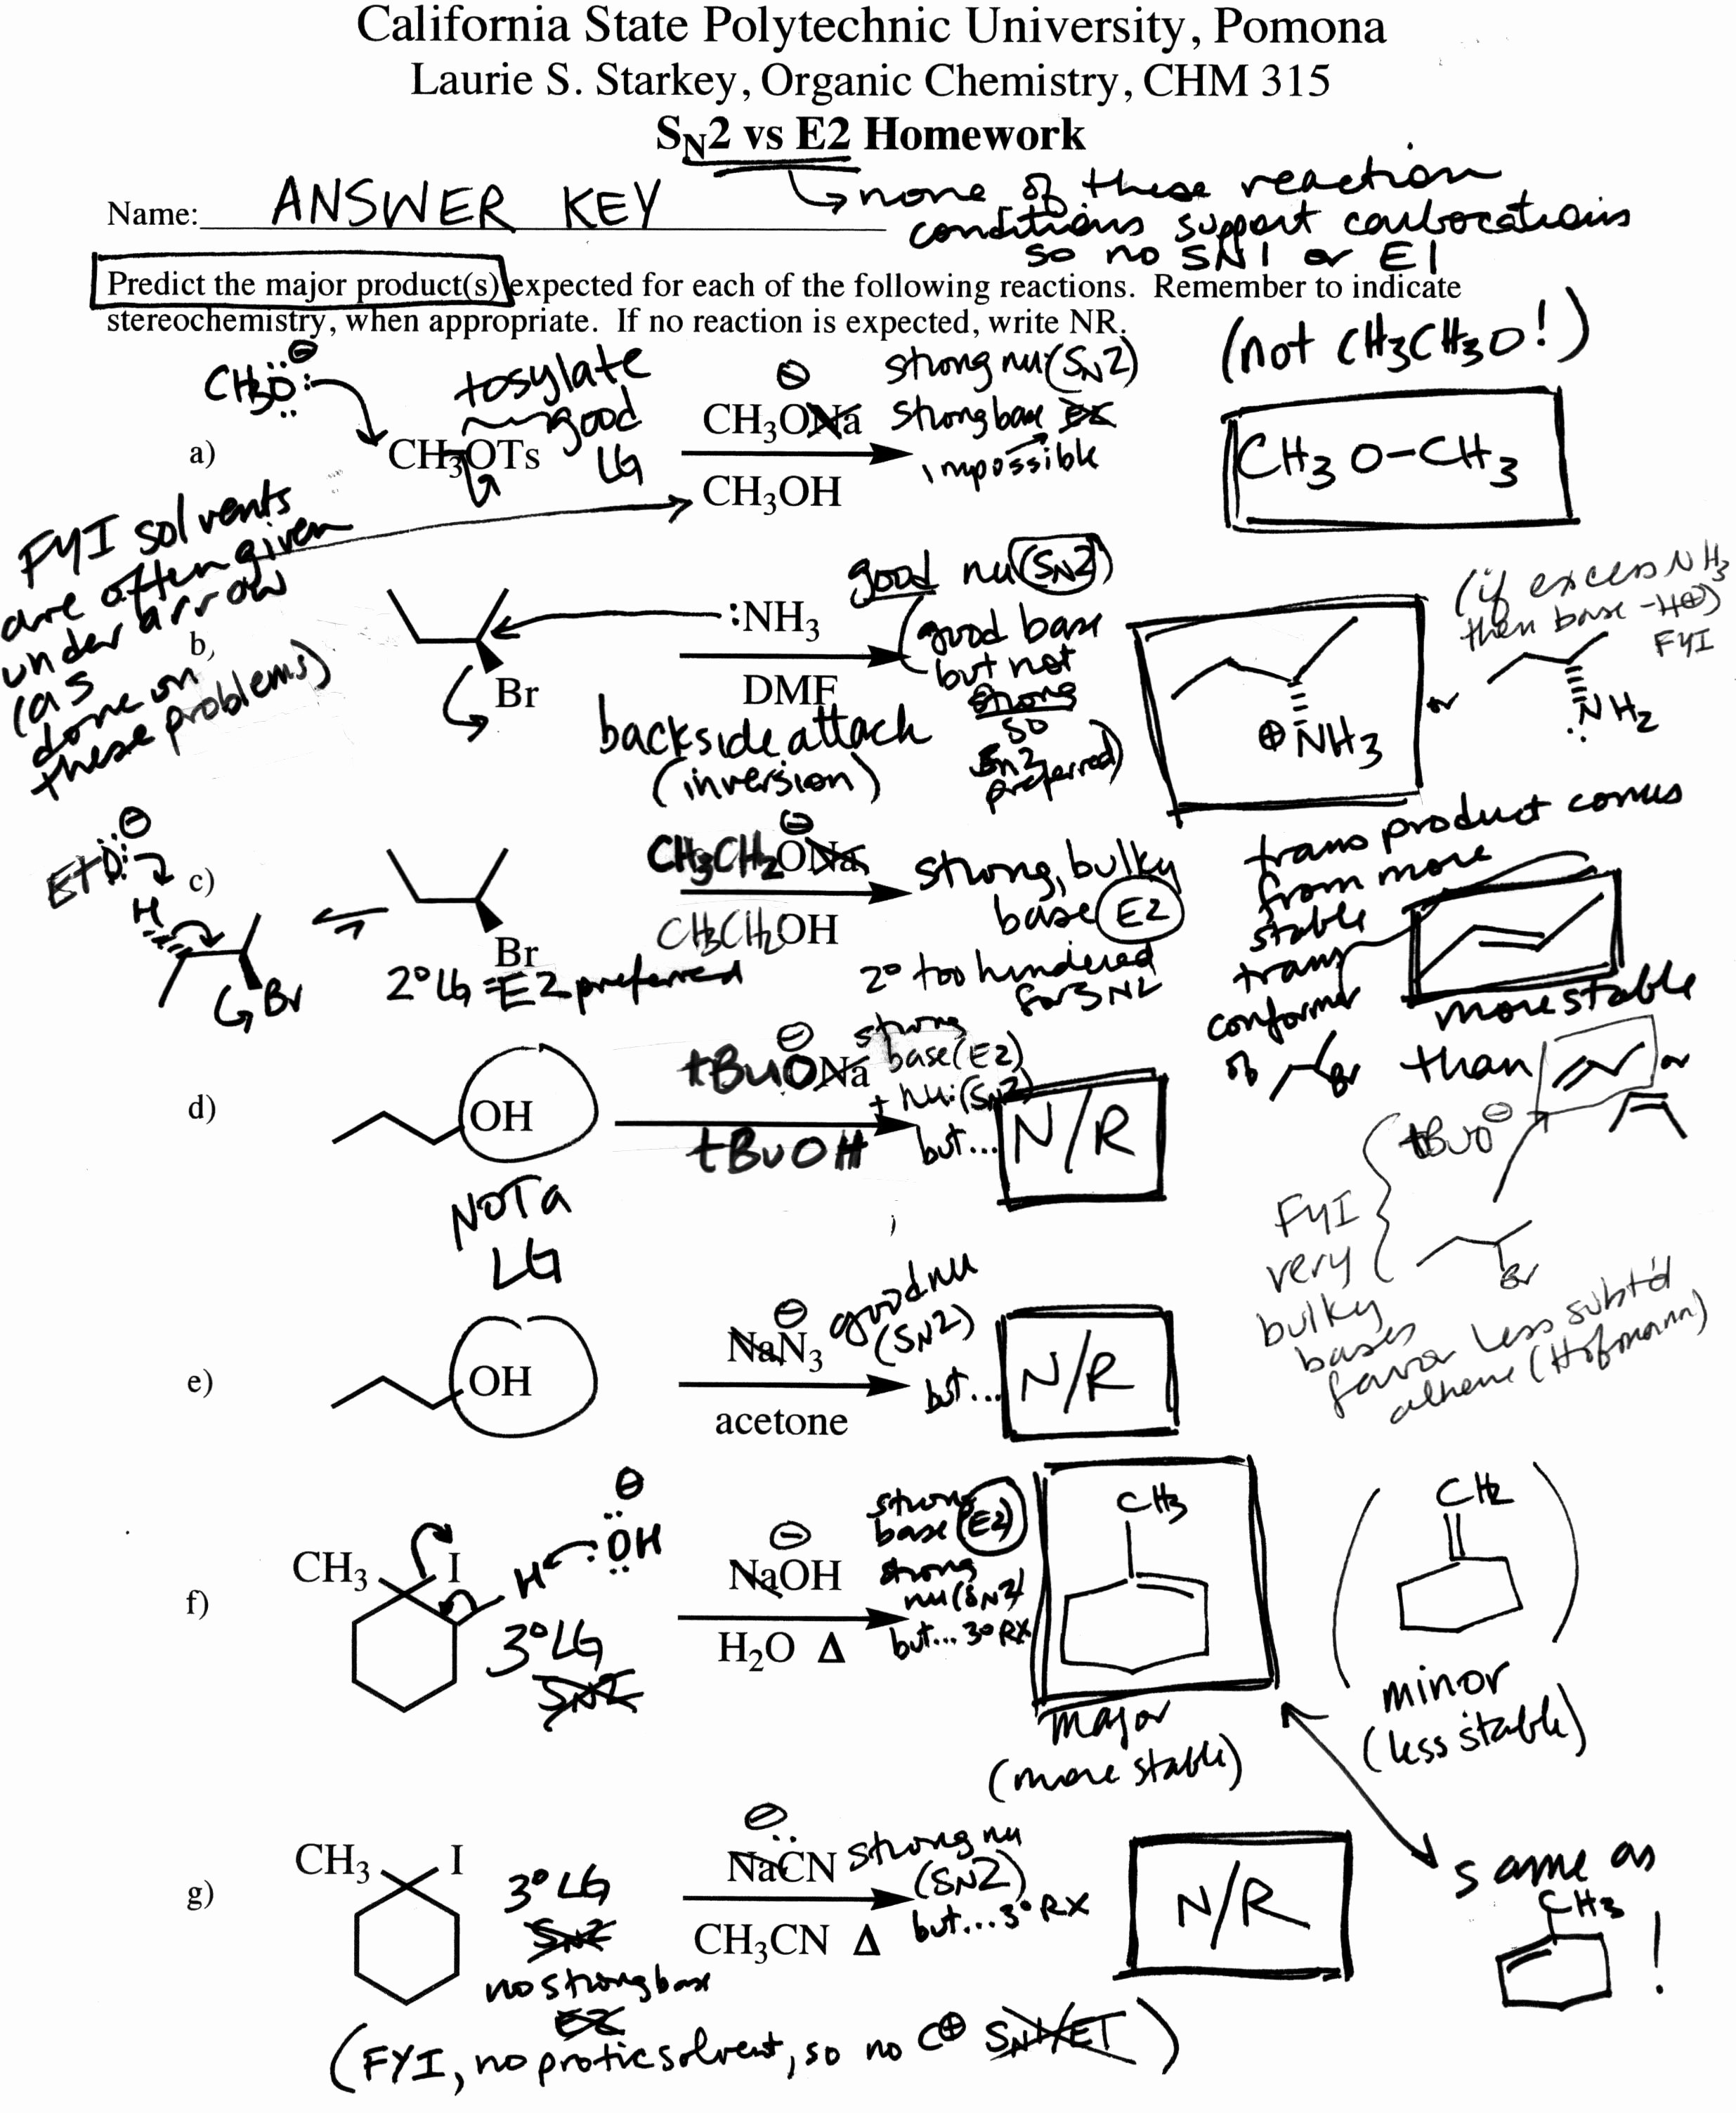 California State Polytechnic University, Pomona
Laurie S. Starkey, Organic Chemistry, CHM 315
SN2 vs E2 Homework
→ none of these reaction
conditions support carbocations
so no SN1 or E1
Name: ANSWER KEY
Predict the major product(s) expected for each of the following reactions. Remember to indicate
stereochemistry, when appropriate. If no reaction is expected, write NR.
(not CH3CH3O!)
CH3Ö:⊖
tosylate
good
LG
a)
CH3OTs
⊖
CH3ONa
CH3OH
strong nu (SN2)
strong base E2
impossible
CH3O-CH3
FYI solvents
are often given
under arrow
(as
done on
these problems)
b,
Br
:NH3
DMF
backside attack
(inversion)
good nu (SN2)
(good base
but not
strong
so
SN2
preferred)
⊕NH3
or
(if excess NH3
then base -H⊕)
FYI
NH2
EtÖ:⊖
H
Br
c)
Br
2° LG = E2 preferred
⊖
CH3CH2ONa
CH3CH2OH
strong, bulky
base (E2)
2° too hindered
for SN2
trans product comes
from more
stable
trans
conformer
of
Br
more stable
than
or
d)
OH
NOT a
LG
⊖
tBuONa
tBuOH
strong
base (E2)
+ nu: (SN2)
but...
N/R
tBuO⊖
Br
FYI
very
bulky
bases
favor less subt'd
alkene (Hofmann)
e)
OH
⊖
NaN3
acetone
good nu
(SN2)
but...
N/R
f)
CH3
I
H
⊖
:ÖH
3° LG
SN2
⊖
NaOH
H2O Δ
strong
base (E2)
strong
nu (SN2)
but... 3° RX
CH3
major
(more stable)
CH2
minor
(less stable)
g)
CH3
I
3° LG
SN2
no strong base
E2
⊖
NaCN
CH3CN Δ
strong nu
(SN2)
but...3° RX
N/R
same as
CH3
!
(FYI, no protic solvent, so no C⊕ SN1/E1)